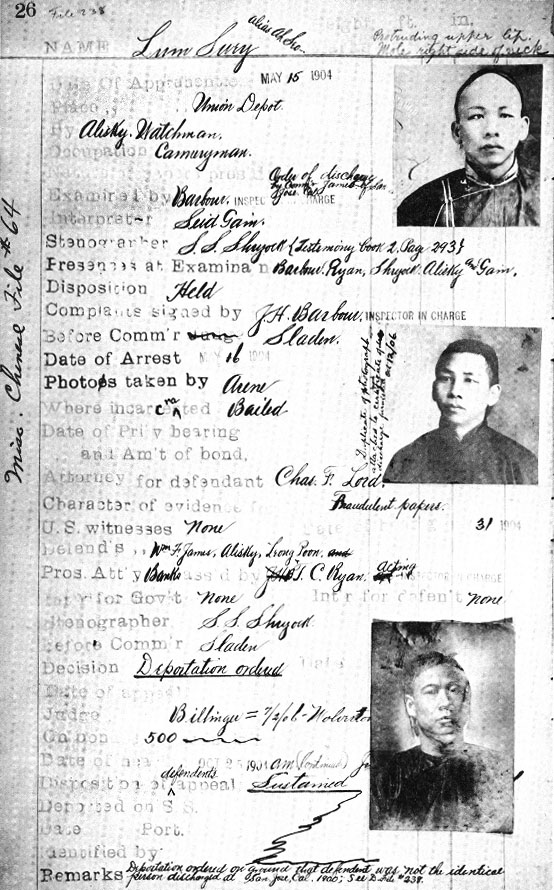 26 File 238
ft. in.
NAME Lum Sury alias Ah Soo
Protruding upper lip.
Mole right side of neck
Date Of Apprehension MAY 15 1904
Place, Union Depot.
By Alisky, Watchman.
Occupation Cannryman.
Order of discharge
by Comm'r James of San
Jose, Cal.
Examined by Barbour, INSPECTOR IN CHARGE
Interpreter Seid Gam.
Stenographer S. S. Shryock {Testimony book 2, Page 293}
Presences at Examina n Barbour, Ryan, Shryock, Alisky and Gam.
Disposition Held
Complaint signed by J. H. Barbour, INSPECTOR IN CHARGE
Before Comm'r Sladen.
Date of Arrest MAY 16 1904
Photos taken by Arene
Where incarcerated Bailed
Duplicate of photograph
attached to certificate of
discharge
Date of Pri'y hearing
and Am't of bond,
Attorney for defendant Chas. F. Lord.
Character of evidence Fraudulent papers.
U.S. witnesses None 31 1904
Defend's Wm F. James, Alisky, Leong Poon, and
Pros. Att'y Banks T. C. Ryan, acting INSPECTOR IN CHARGE
for Gov't None Int'r for defen't None
Stenographer S. S. Shryock
Before Comm'r Sladen
Decision Deportation ordered
Date of appeal
Judge Bellinger
On bond 500
OCT 25 1904 am
Disposition of defendents appeal Sustained
Deported on S.S.
Date Port.
Identified by
Remarks Deportation ordered on ground that defendent was not the identical
person discharged at San Jose, Cal. 1900; See D. File #238.
Misc. Chinese File #64